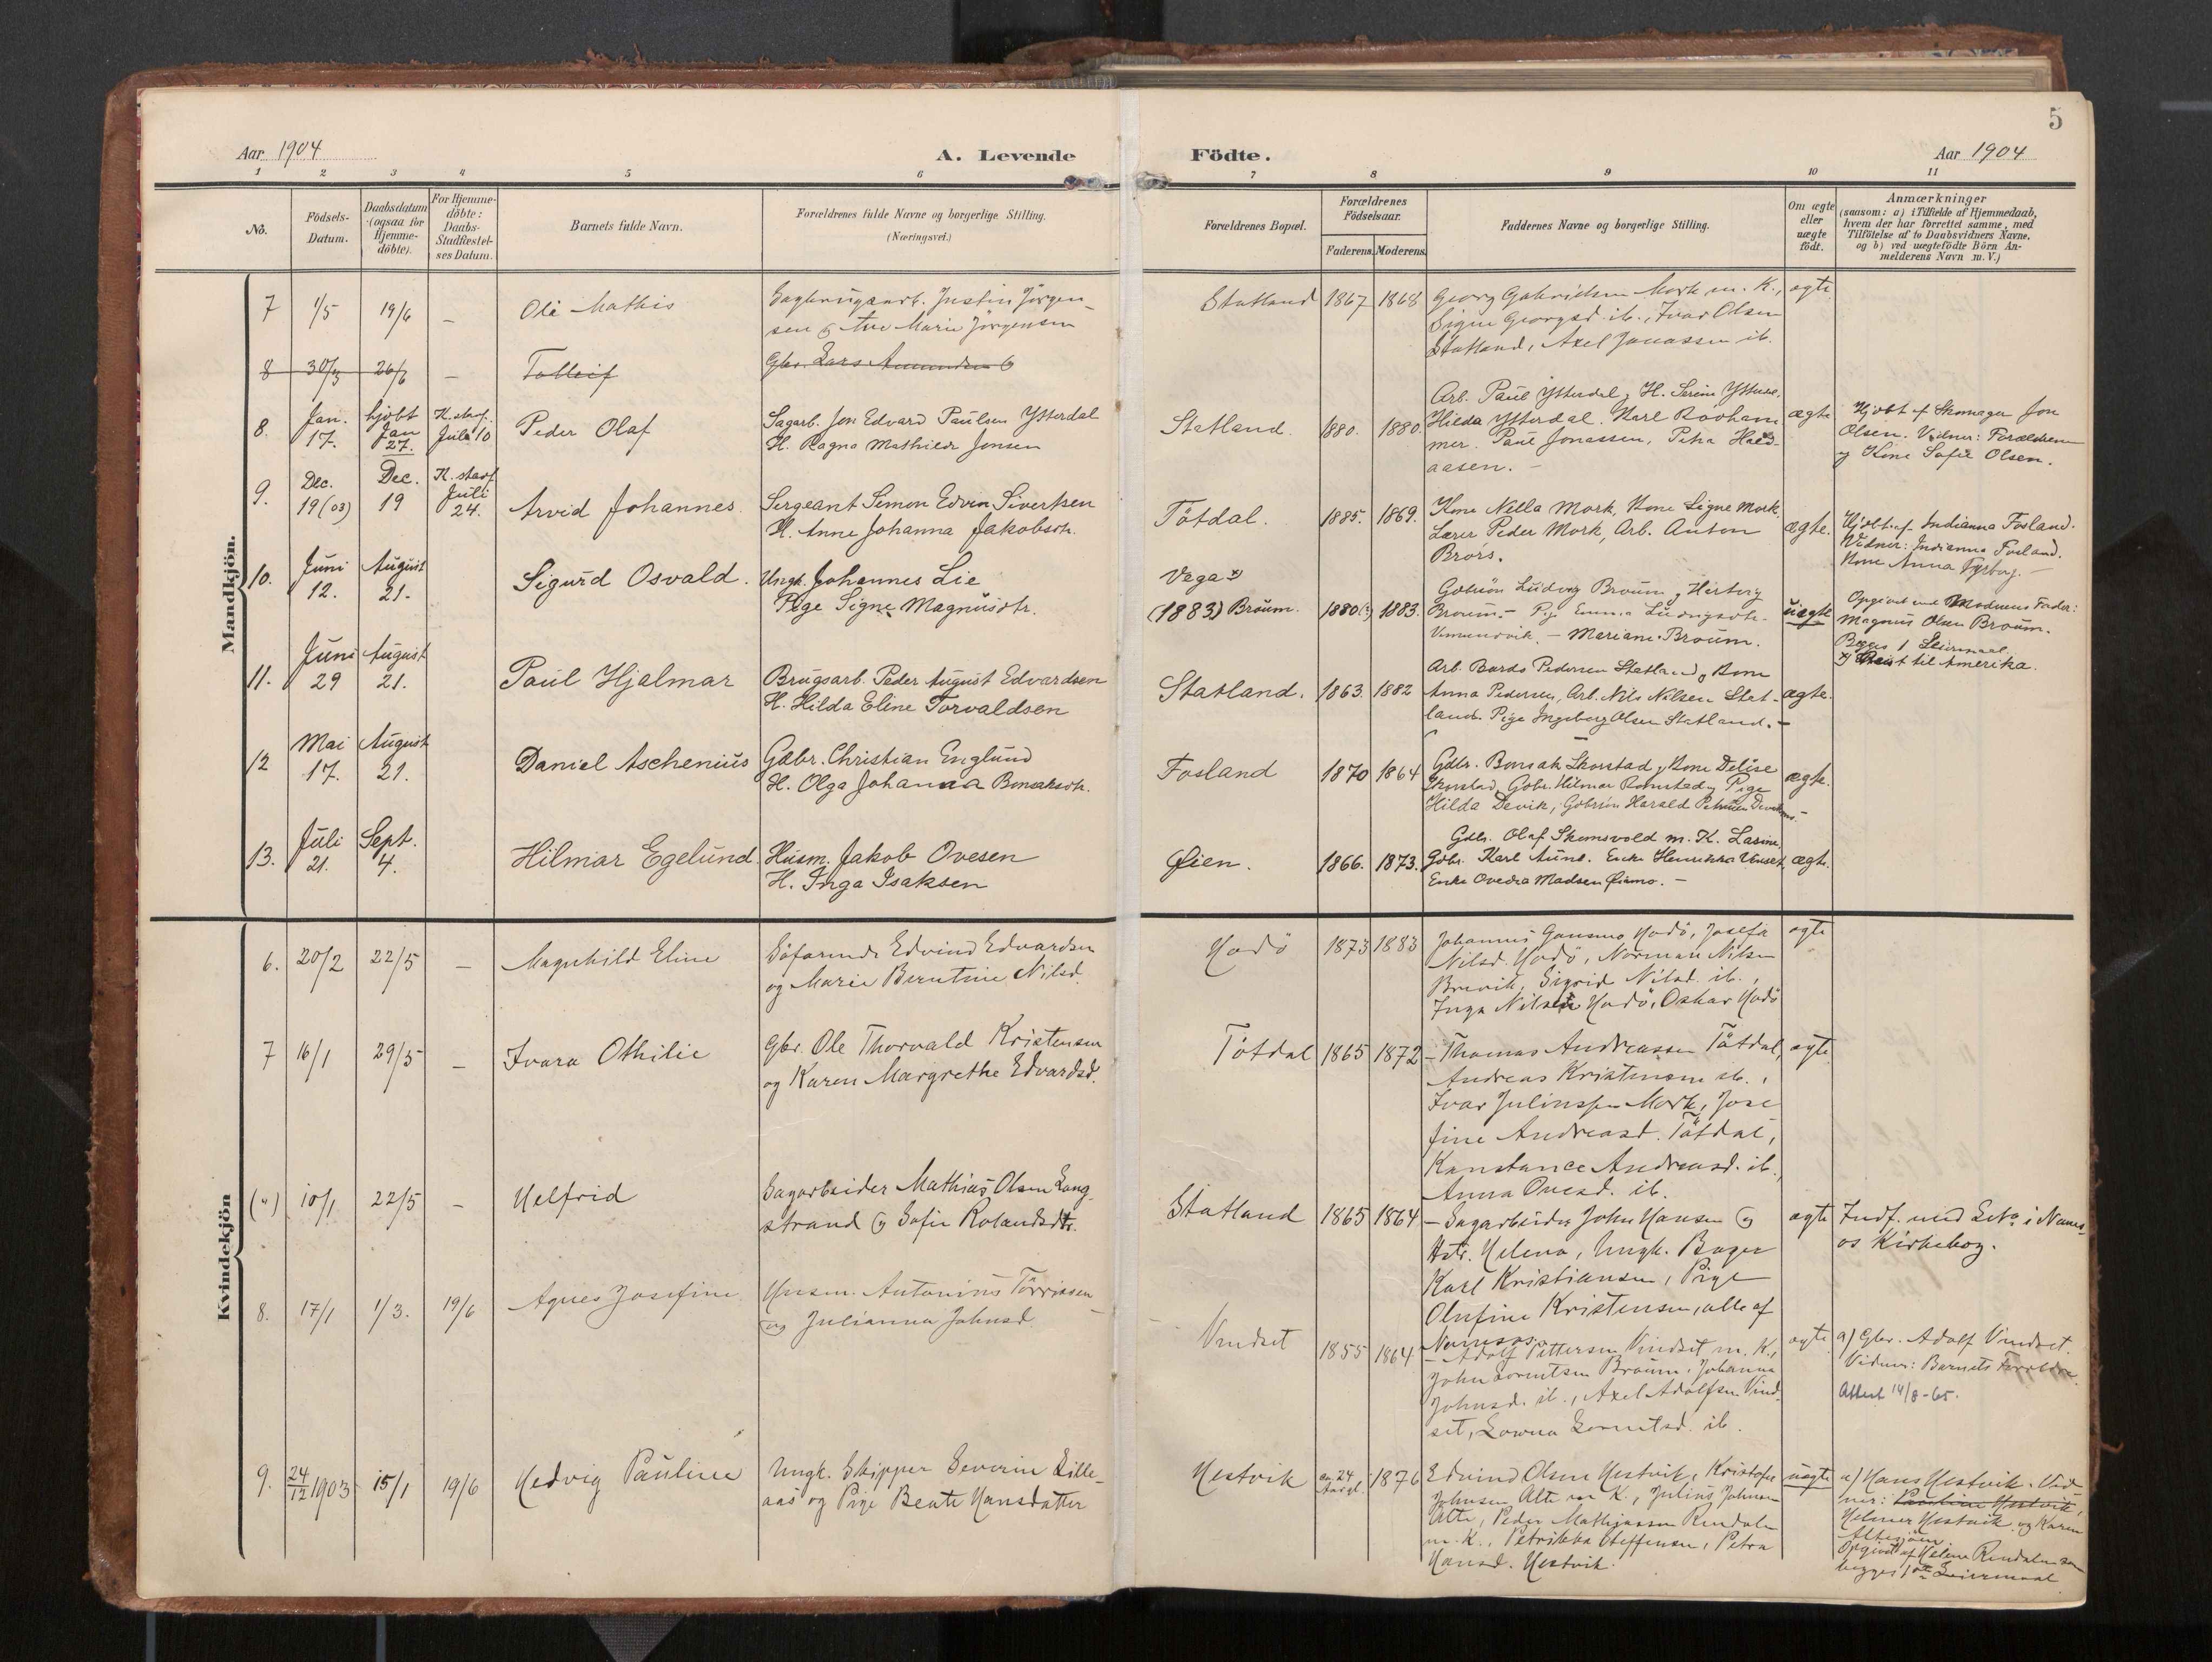 5
Aar 1904
A. Levende
Födte.
Aar 1904
1 2 3 4 5 6 7 8 9 10 11
No.
Födsels-
Datum.
Daabsdatum
(ogsaa for
Hjemme-
döbte).
For Hjemme-
döbte:
Daabs-
Stadfæstel-
ses Datum.
Barnets fulde Navn.
Forældrenes fulde Navne og borgerlige Stilling.
(Næringsvei.)
Forældrenes Bopæl.
Forældrenes
Födselsaar.
Faderens. Moderens.
Faddernes Navne og borgerlige Stilling.
Om ægte
eller
uægte
födt.
Anmærkninger
(saasom: a) i Tilfælde af Hjemmedaab,
hvem der har forrettet samme, med
Tilföielse af to Daabsvidners Navne,
og b) ved uægtefödte Börn An-
melderens Navn m. V.)
Mandkjön.
7 1/5 19/6 – Ole Mathis
Sagbrugsarb. Justin Jörgen-
sen og Ane Marie Jörgensen
Statland 1867 1868
Georg Gabrielsen Mork m. K.,
Signe Georgsd. ib., Ivar Olsen
Statland, Axel Jonassen ib.
ægte
8 30/3 26/6 – Tolleif
Gbr. Lars Amundsen og
8. Jan. 17. hjdbt Jan 27. K. stadf. Juli 10
Peder Olaf
Sagarb. Jon Edvard Paulsen Ytterdal
H. Ragna Mathilde Jonsen
Statland. 1880. 1880.
Arb. Paul Ytterdal, H. Serine Ytterdal,
Hilda Ytterdal. Karl Rödham
mer. Paul Jonassen, Petra Hald-
aasen. –
ægte
Hjdbt af Skomager Jon
Olsen. Vidner: Forældrene
og Kone Sofie Olsen.
9. Dec. 19 (03) Dec. 19 K. stadf Juli 24.
Arvid Johannes.
Sergeant Simon Edvin Sivertsen
H. Anne Johanna Jakobsdtr.
Tötdal. 1885. 1869.
Kone Nella Mork, Kone Signe Mork,
Lærer Peder Mork, Arb. Anton
Brörs.
ægte.
Hjdbt. af Indianna Fosland.
Vidner: Indianna Fosland.
Kone Anna Fosland. –
10. Juni 12. August 21.
Sigurd Osvald.
Ungk. Johannes Lie
Pige Signe Magnusdtr.
Vega x)
(1883) Braum. 1880(?) 1883.
Gbrsön Ludvig Braum, Hertvig
Braum. – Pige Emma Ludvigsdtr.
Vemundvik. – Mariane Braum.
uægte
Opgivet ved Moderens Fader:
Magnus Olsen Braum.
Begges 1 Leiermaal.
x) Reist til Amerika.
11. Juni 29 August 21.
Paul Hjalmar
Brugsarb. Peder August Edvardsen
H. Hilda Eline Torvaldsen
Statland. 1863. 1882
Arb. Bards Pedersen Statland, Kone
Anna Pedersen, Arb. Nils Nilsen Stat-
land. Pige Ingeborg Olsen Statland. –
ægte.
12 Mai 17. August 21.
Daniel Aschenius
Gdbr. Christian Englund
H. Olga Johanna Bensaksdtr.
Fosland 1870 1864
Gdbr. Bensak Skorstad, Kone Delise
Skorstad, Gdbr. Hilmar Ramstad, Pige
Hilda Devik, Gdbrsön Harald Petersen Devik
ægte.
13. Juli 21. Sept. 4.
Hilmar Egelund.
Husm. Jakob Ovesen
H. Inga Isaksen
Øien. 1866. 1873.
Gdbr. Olaf Skomsvold m. K. Lasine,
Gdbr. Karl Aune. Enke Henrikka Vinset,
Enke Ovedia Madsen Øiamo. –
ægte.
Kvindekjön
6. 20/2 22/5 – Magnhild Eline
Söfarende Edvind Edvardsen
og Marie Berntine Nilsd.
Hodö 1873 1883
Johannes Gansmo Hodö, Josefa
Nilsd. Hodö, Norman Nilsen
Brevik, Sigrid Nilsd. ib.,
Inga Nilsen Hodö, Oskar Hodö
ægte
7 16/1 29/5 – Ivara Othilie
Gbr. Ole Thorvald Kristensen
og Karen Margrethe Edvardsd.
Tötdal 1865 1872
– Thomas Andreassen Tötdal,
Andreas Kristensen ib.,
Ivar Julinssen Mork, Jose
fine Andreasd. Tötdal,
Konstance Andreasd. ib.,
Anna Ovesd. ib.
ægte
(") 10/1 22/5 – Helfrid
Sagarbeider Mathias Olsen Lang
strand og Sofie Rolandsdtr.
Statland 1865 1864
– Sagarbeider John Hansen og
Hstr. Helena, Ungk. Bager
Karl Kristiansen, Pige
Olufine Kristensen, alle af
Namsos.
ægte
Indf. med Lebo i Nams-
os Kirkebog.
8. 17/1 1/3. 19/6 Agnes Josefine
Husm. Antonius Törrissen
og Julianna Johnsd.
Vindset 1855 1864
– Adolf Pettersen Vindset m. K.,
John Lorentsen Braum, Johanna
Johnsd. ib., Axel Adolfsen Vind
set, Lovna Lorentsd. ib.
ægte
a) Gbr. Adolf Vindset.
Vidner: Barnets Forældre.
Attest 14/8-65.
9. 24/12 1903 15/1 19/6 Hedvig Pauline
Ungk. Skipper Severin Lille-
aas og Pige Beate Hansdatter
Hestvik ca. 24 Aar gl. 1876
Edvind Olsen Hestvik, Kristofer
Johnsen Alte m K., Julius Johnsen
Alte, Peder Mathiassen Rendalen
m. K., Petrikka Steffensen, Petra
Hansd. Hestvik.
uægte
a) Hans Hestvik. Vid
ner: Pauline Hestvik,
Helmer Hestvik og Karen
Altesjöen
Opgivet af Helene Rendalen som
begges 1ste Leiermaal